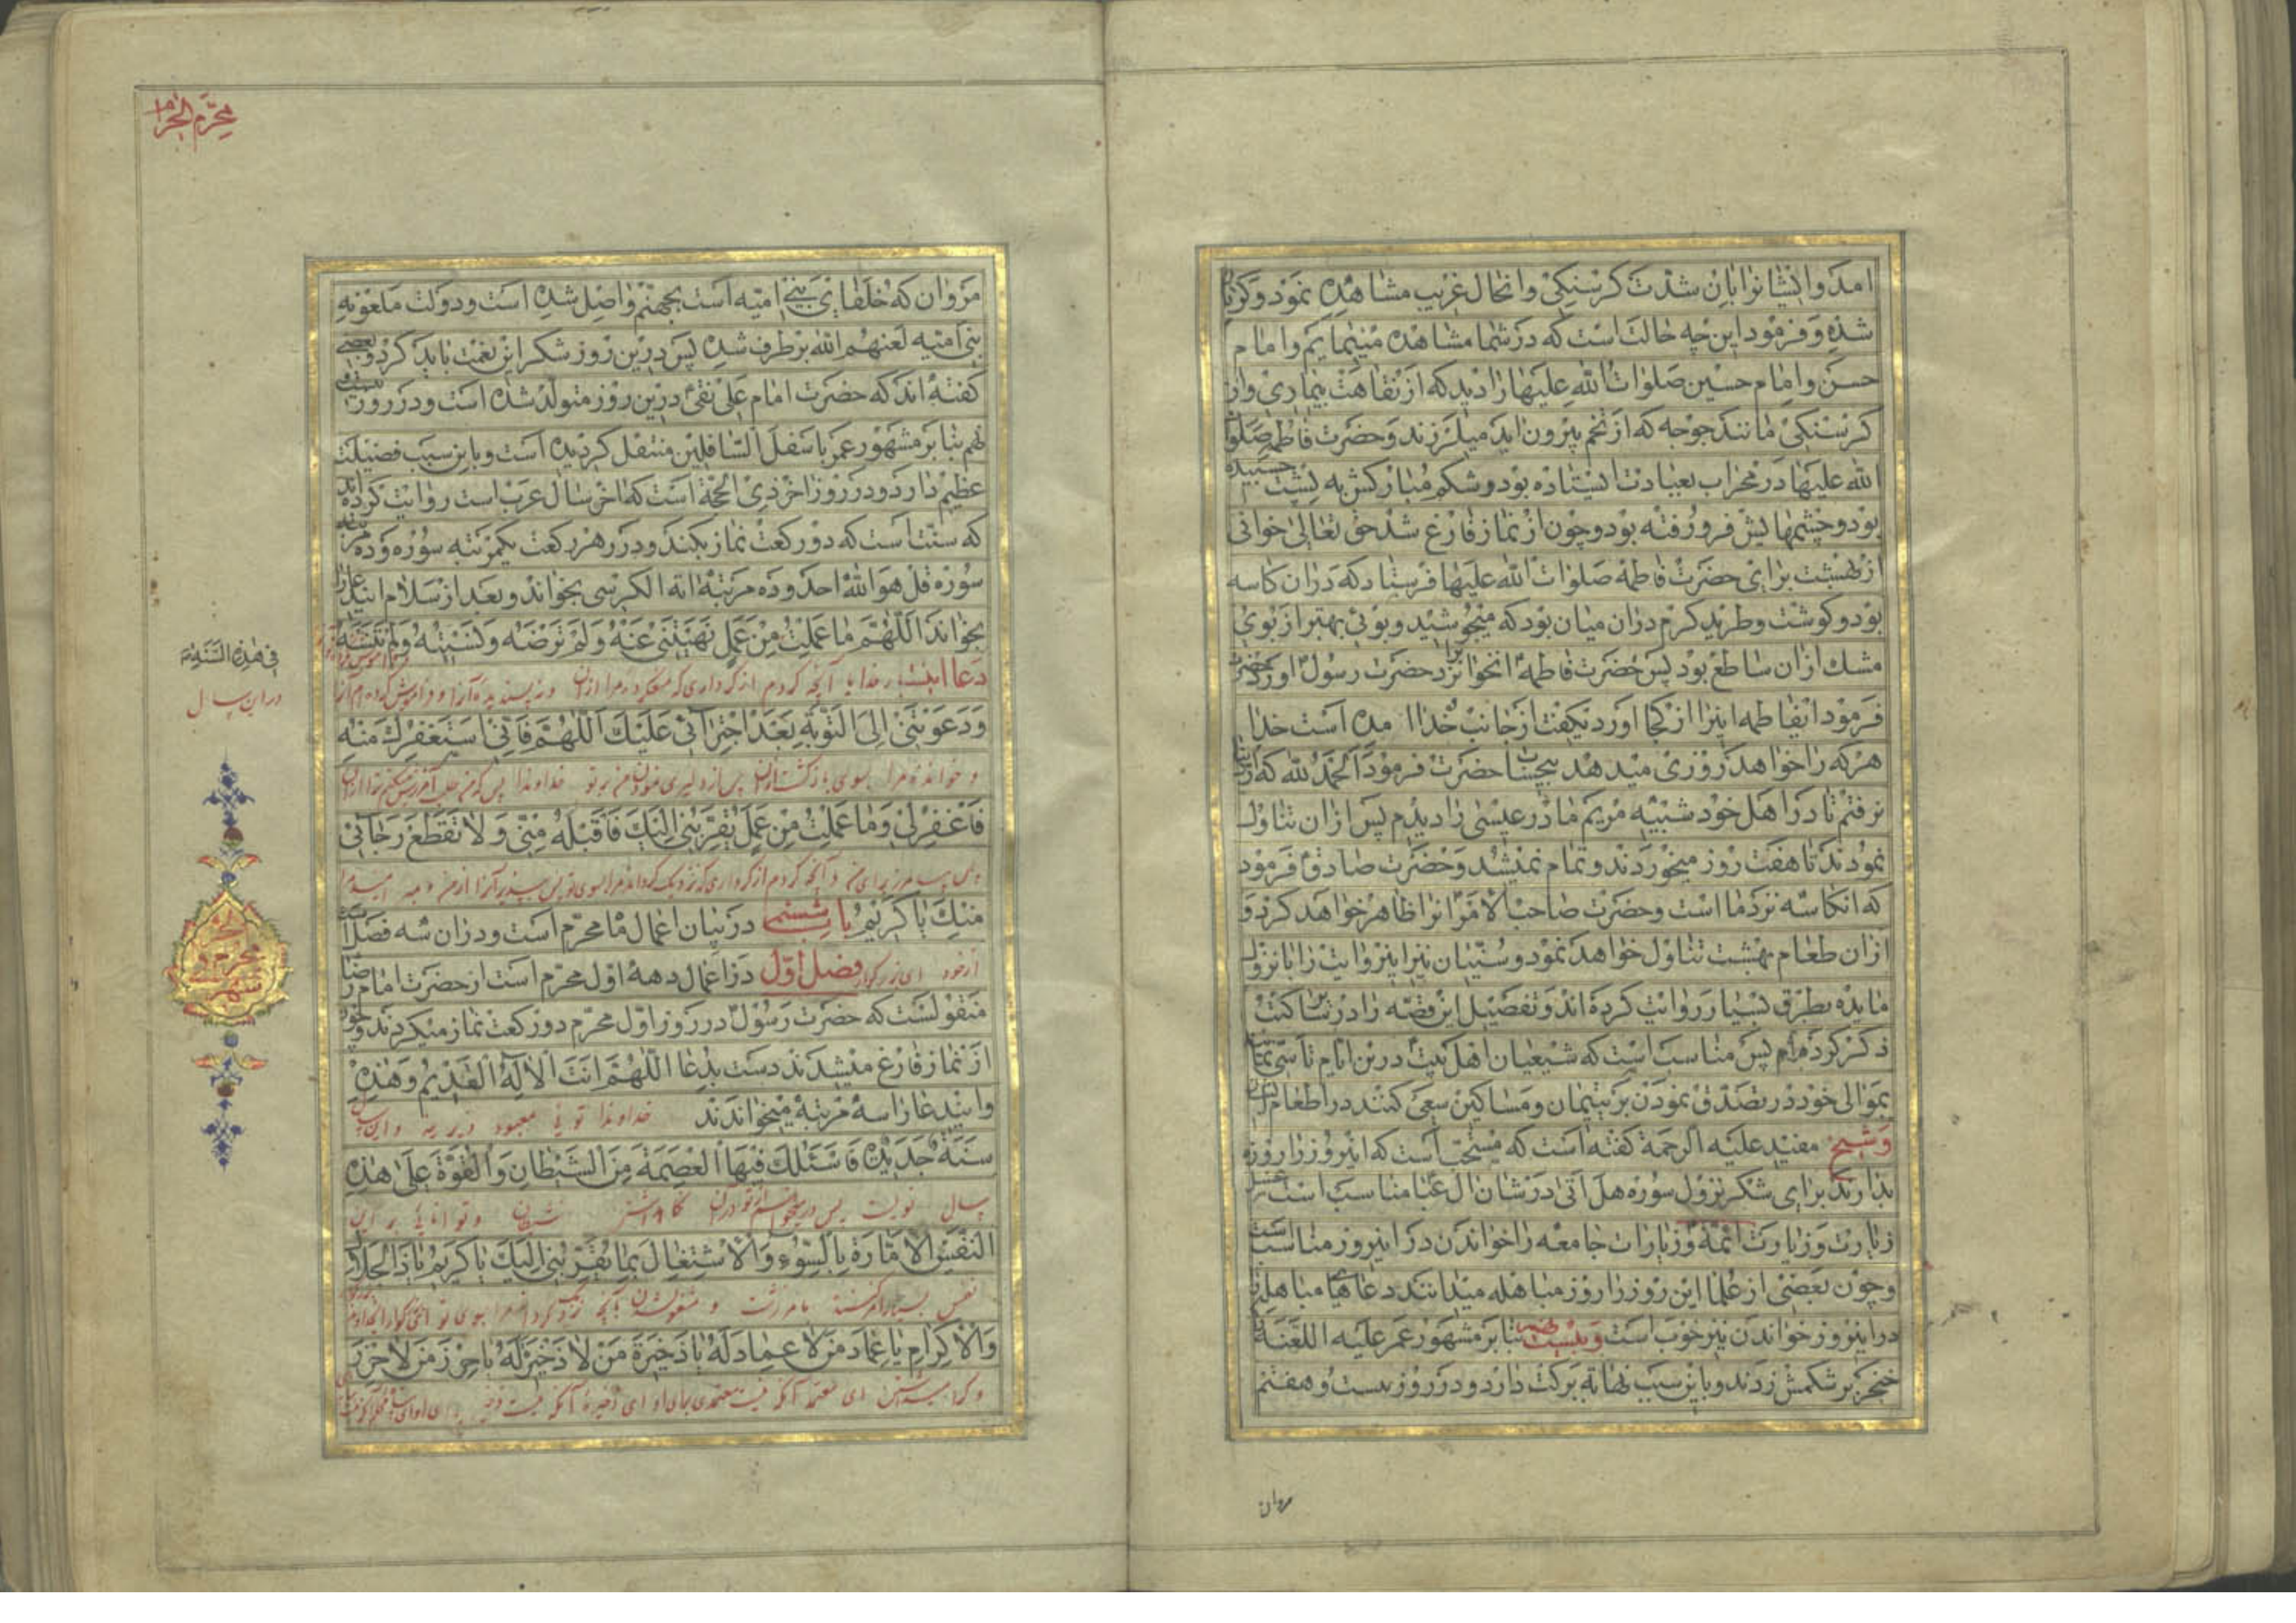 امد و ایشانرا باین شدت کرسنکی و انحال غریب مشاهده نمود و کریان
شده و فرمود این چه حالت است که در شما مشاهده مینمایم و امام
حسن و امام حسین صلوات الله علیهما را دید که از نقاهت بیماری و از
کرسنکی مانند جوجه که از تخم بیرون اید میلرزند و حضرت فاطمه صلوات
الله علیها در محراب بعبادت ایستاده بود و شکم مبارکش به پشت چسبیده
بود و چشمهایش فرو رفته بود و چون از نماز فارغ شد حق تعالی خوانی
از بهشت برای حضرت فاطمه صلوات الله علیها فرستاد که در ان کاسه
بود و کوشت و طرید کرم در ان میان بود که میجوشید و بوئی بهتر از بوی
مشک ازان ساطع بود پس حضرت فاطمه انخوانرا نزد حضرت رسول اورد حضرت
فرمود ایفاطمه اینرا از کجا اورد یکفت از جانب خدا امده است خدا
هر که را خواهد روزی میدهد بیحساب حضرت فرمود الحمد لله که از دنیا
نرفتم تا در اهل خود شبیه مریم مادر عیسی را دیدم پس ازان تناول
نمودند تا هفت روز میخوردند و تمام نمیشد و حضرت صادق فرمود
که انکاسه نزد ما است و حضرت صاحب الامر انرا ظاهر خواهد کرد و
ازان طعام بهشت تناول خواهد نمود و سنیان نیز اینروایت را با نزول
مایده بطرق بسیار روایت کرده اند و تفصیل این قصه را در
ذکر کرده ام پس مناسب است که شیعیان اهل بیت درین ایام تاسی نمایند
بموالی خود در تصدق نمودن بر یتیمان و مساکین سعی کنند در اطعام ایشان
و شیخ مفید علیه الرحمة کفته است که مستحب است که اینروز را روزه
بدارند برای شکر نزول سوره هل اتی در شان ال عبا مناسب است غسل
زیارت و زیارت ائمه و زیارات جامعه را خواندن در اینروز مناسب است
و چون بعضی از علما این روز را روز مباهله میدانند دعاهای مباهله
در اینروز خواندن نیز خوب است و بیست نهم بنا بر مشهور عمر علیه اللعنة
خنجر بر شکمش زدند و باین سبب نهایة برکت دارد و در روز بیست و هفتم
مروان
محرم الحرام
مروان که خلفای بنی امیه است بجهنم واصل شده است و دولت ملعونه
بنی امیه لعنهم الله برطرف شده پس درین روز شکر این نعمت باید کرد و بعضی
کفته اند که حضرت امام علی نقی درین روز متولد شده است و در روز بیست
نهم بنا بر مشهور عمر باسفل السافلین منتقل کردیده است و باین سبب فضیلت
عظیم دارد و در روز اخر ذی الحجة است که اخر سال عرب است روایت کرده اند
که سنت است که دو رکعت نماز بکند و در هر رکعت یکمرتبه سوره و ده مرتبه
سوره قل هو الله احد و ده مرتبة ایة الکرسی بخواند و بعد از سلام ایندعا را
بخواند اللهم ما عملت من عمل نهیتنی عنه ولم ترضه ونسیته ولم تنسه
دعا اینست بار خدایا آنچه کردم از کرداری که نهی کرده مرا ازان و نه پسندیده آنرا و فراموش کرده ام آنرا
ودعوتنی الی التوبة بعد اجترائی علیک اللهم فانی استغفرک منه
و خواندی مرا بسوی بازکشتن پس از دلیری نمودن من بر تو خداوندا پس که من طلب آمرزش میکنم ترا ازان
فاغفر لی وما عملت من عمل یقربنی الیک فاقبله منی ولا تقطع رجائی
پس بیامرز برای من و آنچه کردم از کرداری که نزدیک کرداند مرا بسوی تو پس بپذیر آنرا از من و مبر امید مرا
منک یا کریم باب ششم در بیان اعمال ماه محرم است و دران سه فصل است
از خود ای بزرکوار فصل اول در اعمال دهه اول محرم است از حضرت امام رضا
منقولست که حضرت رسول در روز اول محرم دو رکعت نماز میکردند و چون
از نماز فارغ میشدند دست بدعا اللهم انت الاله القدیم وهذه
و ایندعا را سه مرتبة میخواندند خداوندا توئی معبود دیرینه و این سال
سنة جدیدة فاسئلک فیها العصمة من الشیطان والقوة علی هذه
سال نویست پس در میخواهم از تو دران نکاهداشتن شیطان و توانائی بر این
النفس الامارة بالسوء والاشتغال بما یقربنی الیک یا کریم یا ذا الجلال
نفس بسیار امر کننده بامر زشت و مشغول شدن بآنچه نزدیک کرداند مرا بسوی تو
والاکرام یا عماد من لا عماد له یا ذخیرة من لا ذخیرة له یا حرز من لا حرز
ای معتمد آنکه نیست معتمدی برای او ای ذخیره آنکه نیست ذخیره برای او
فی هذه السنة
در این سال